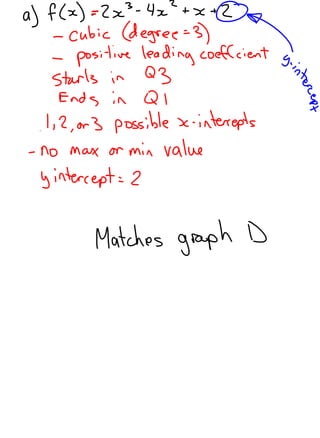 a) f(x) = 2x³ - 4x² + x + 2
y-intercept
- cubic (degree = 3)
- positive leading coefficient
Starts in Q3
Ends in Q1
1, 2, or 3 possible x-intercepts
- no max or min value
y intercept = 2
Matches graph D